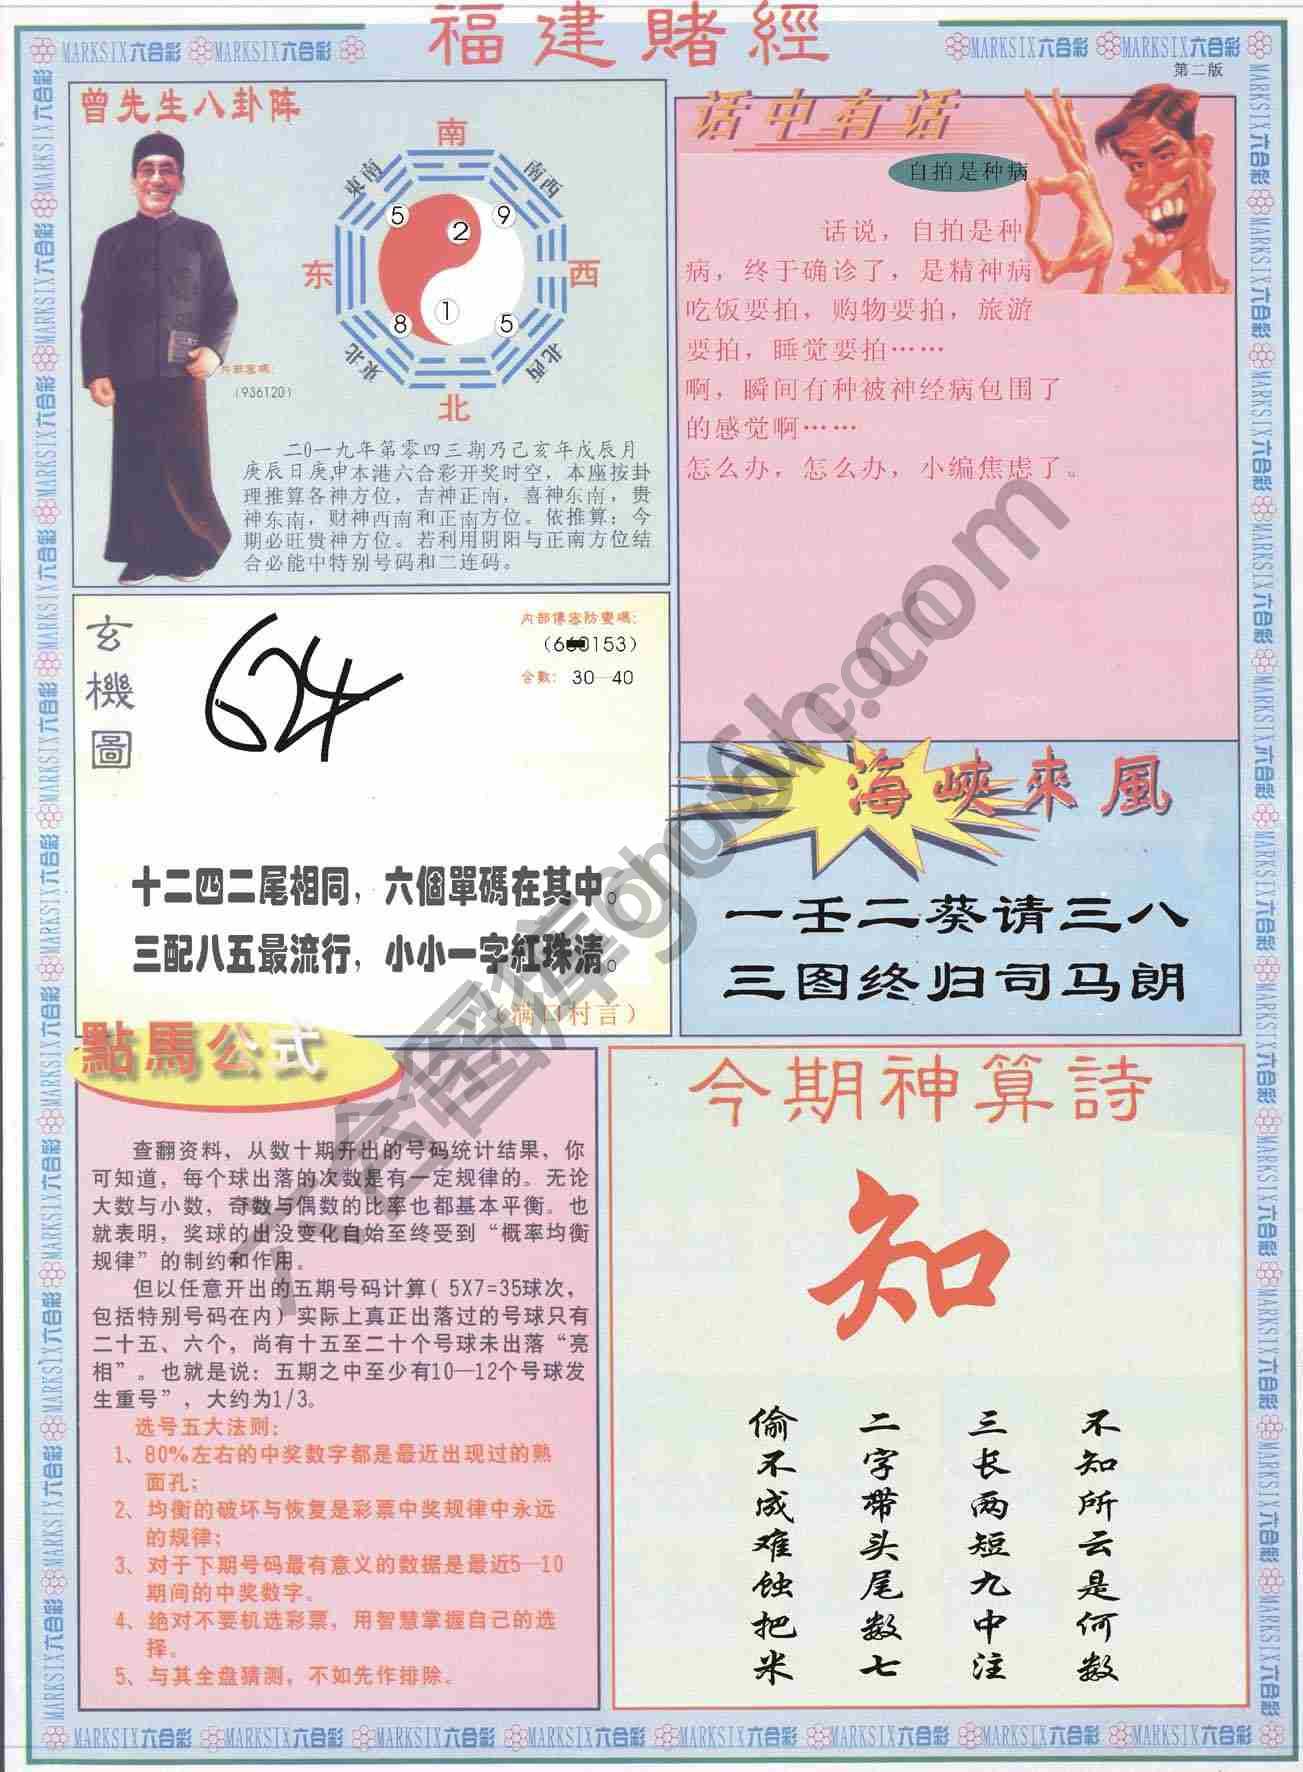 福建賭經
MARKSIX六合彩 MARKSIX六合彩
MARKSIX六合彩 MARKSIX六合彩
第二版
曾先生八卦阵
南
東南
南西
5
2
9
东
西
8
1
5
東北
北西
北
内部密碼:
(936120)
二0一九年第零四三期乃己亥年戊辰月
庚辰日庚申本港六合彩开奖时空，本座按卦
理推算各神方位，吉神正南，喜神东南，贵
神东南，财神西南和正南方位。依推算；今
期必旺贵神方位。若利用阴阳与正南方位结
合必能中特别号码和二连码。
话中有话
自拍是种病
话说，自拍是种
病，终于确诊了，是精神病
吃饭要拍，购物要拍，旅游
要拍，睡觉要拍……
啊，瞬间有种被神经病包围了
的感觉啊……
怎么办，怎么办，小编焦虑了。
玄機圖
624
内部傳密防變碼:
(660153)
合數: 30—40
十二四二尾相同，六個單碼在其中。
三配八五最流行，小小一字紅珠清。
（满口村言）
海峽來風
一壬二葵请三八
三图终归司马朗
點馬公式
查翻资料，从数十期开出的号码统计结果，你
可知道，每个球出落的次数是有一定规律的。无论
大数与小数，奇数与偶数的比率也都基本平衡。也
就表明，奖球的出没变化自始至终受到“概率均衡
规律”的制约和作用。
但以任意开出的五期号码计算(5X7=35球次，
包括特别号码在内)实际上真正出落过的号球只有
二十五、六个，尚有十五至二十个号球未出落“亮
相”。也就是说：五期之中至少有10—12个号球发
生重号”，大约为1/3。
选号五大法则:
1、80%左右的中奖数字都是最近出现过的熟
面孔;
2、均衡的破坏与恢复是彩票中奖规律中永远
的规律;
3、对于下期号码最有意义的数据是最近5—10
期间的中奖数字。
4、绝对不要机选彩票，用智慧掌握自己的选
择。
5、与其全盘猜测，不如先作排除。
今期神算詩
知
不知所云是何数
三长两短九中注
二字带头尾数七
偷不成难蚀把米
MARKSIX六合彩 MARKSIX六合彩 MARKSIX六合彩 MARKSIX六合彩 MARKSIX六合彩 MARKSIX六合彩 MARKSIX六合彩 MARKSIX六合彩